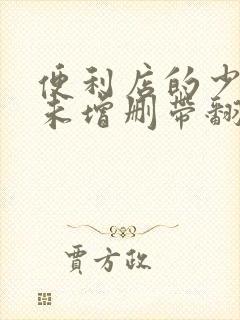 便利店的少
未增删带翻
贾方政